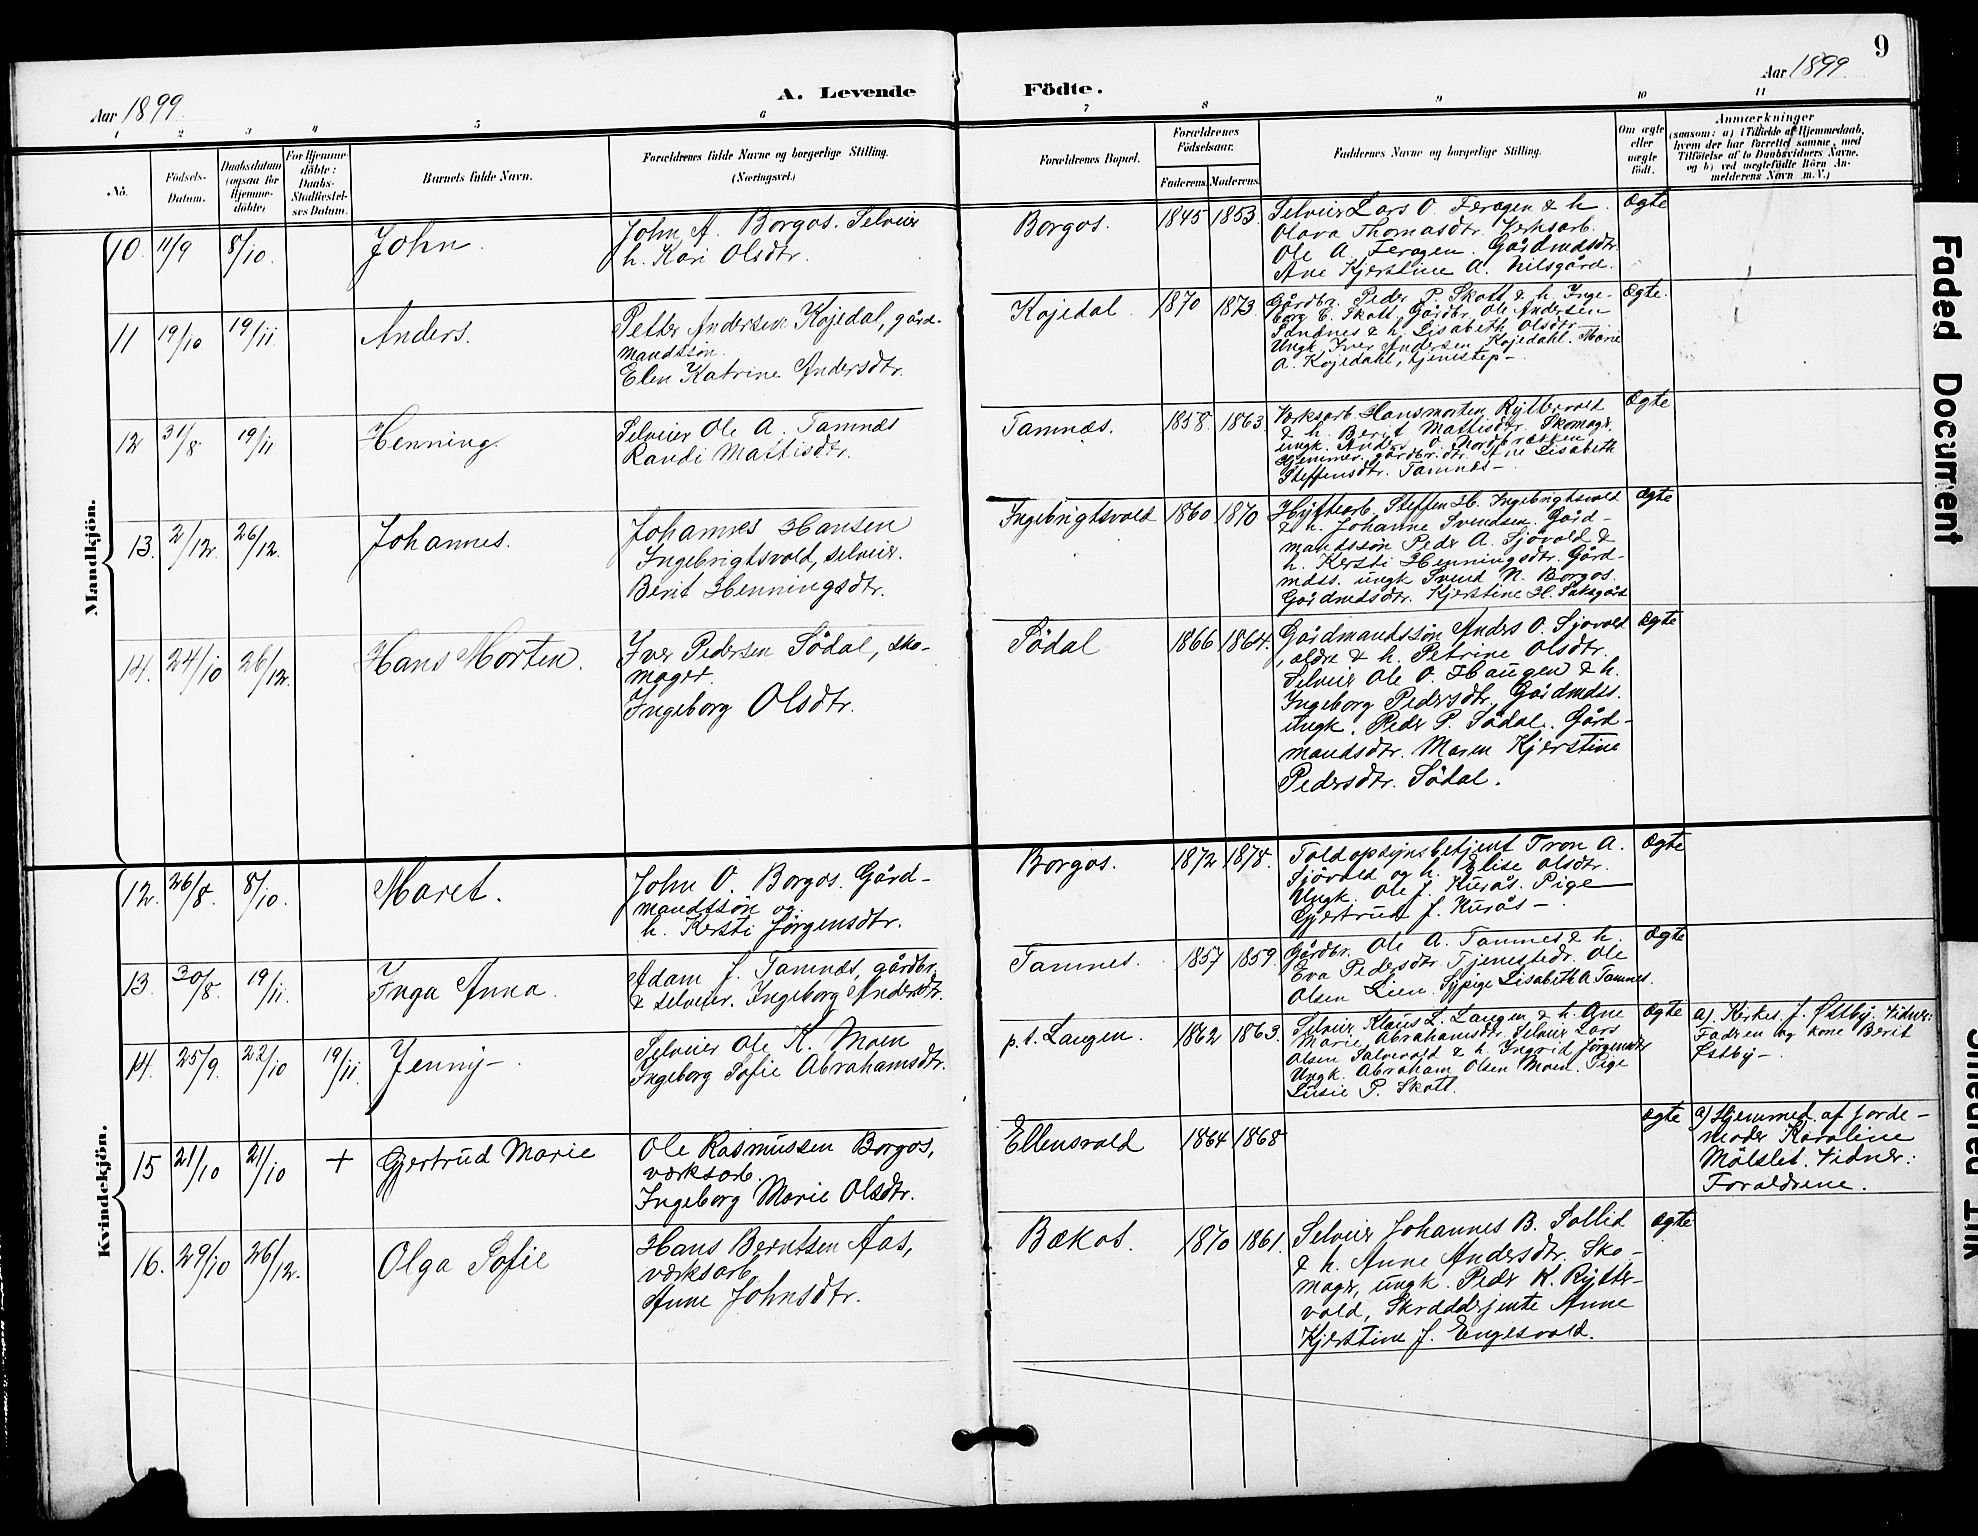 9
Aar 1899
A. Levende
Födte.
Aar 1899
1 2 3 4 5 6 7 8 9 10 11
No.
Födsels-
Datum.
Daabsdatum
(ogsaa for
Hjemme-
döbte)
For Hjemme-
döbte:
Daabs-
Stadfæstel-
ses Datum.
Barnets fulde Navn.
Forældrenes fulde Navne og borgerlige Stilling.
(Næringsvei.)
Forældrenes Bopæl.
Forældrenes
Födselsaar.
Faderens. Moderens.
Faddernes Navne og borgerlige Stilling.
Om ægte
eller
uægte
födt.
Anmærkninger
(saasom: a) i Tilfælde af Hjemmedaab,
hvem der har forrettet samme, med
Tilföielse af to Daabsvidners Navne,
og b) ved uægtefödte Börn An-
melderens Navn m. V.)
Mandkjön.
10. 11/9 8/10. John.
John A. Borgos. Selveier
h. Kari Olsdtr.
Borgos. 1845 1853.
Selveier Lars O. Feragen & h.
Olava Thomasdtr. Verksarb.
Ole A. Feragen. Gårdmdsdtr.
Ane Kjerstine A. Nilsgård.
Ægte
11 19/10 19/11 Anders.
Petter Andersen Kojedal, gård-
mandssøn.
Elen Katrine Andersdtr.
Kojedal. 1870 1873.
Gårdbr. Peder P. Skott & h. Inge-
borg E. Skott. Gårdbr. Ole Andersen
Sandnes & h. Lisabeth Olsdtr.
Ungk. Iver Andersen Kojedahl. Marie
A. Kojedahl, tjenestep-
Ægte.
12 31/8 19/11 Henning.
Selveier Ole A. Tamnæs
Randi Mattisdtr.
Tamnæs. 1858. 1863
Værksarb. Hansmorten Rÿttervold
& h. Berit Mattisdtr. Skomagr.
ungk. Anders O. Nordbrækken
gårdbr.dtr. Ane Lisabeth
Steffensdtr. Tamnæs-
Ægte
13. 2/12. 26/12. Johannes.
Johannes Hansen
Ingebrigtsvold, selveier.
Berit Henningsdtr.
Ingebrigtsvold 1860 1870
Hÿttearb. Steffen H. Ingebrigtsvold
& h. Johanne Svendsen. Gård-
mandssøn Peder A. Sjøvold &
h. Kersti Henningsdtr. Gård-
mdss. ungk Svend N. Borgos.
Gårdmdsdtr. Kjerstine H. Saksgård
ægte
14. 24/10 26/12. Hans Morten.
Iver Pedersen Sødal, sko-
mager.
Ingeborg Olsdtr.
Sødal 1866 1864.
Gårdmandssøn Anders O. Sjøvold
, ældre & h. Petrine Olsdtr.
Selveier Ole O. Haugen & h.
Ingeborg Pedersdtr. Gårdmdss.
ungk. Peder P. Sødal. Gård-
mandsdtr. Maren Kjerstine
Pedersdtr. Sødal.
ægte
Kvindekjön.
12. 26/8. 8/10. Maret.
John O. Borgos. Gård-
mandssøn og
h. Kersti Jørgensdtr.
Borgos. 1872 1878.
Toldopsynsbetjent Tron A.
Sjövold og h. Elise Olsdtr.
Ungk. Ole J. Kurås. Pige
Gjertrud J. Kurås-
Ægte
13. 30/8. 19/11. Inga Anna.
Adam J. Tamnæs, gårdbr.
& selveier. Ingeborg Andersdtr.
Tamnes. 1857 1859.
Gårdbr. Ole A. Tamnes & h.
Eva Pedersdtr. Tjenestedr. Ole
Olsen Lien. Sÿpige Lisabeth A Tamnes.
Ægte
14. 25/9. 22/10 19/11. Jenny-
Selveier Ole K. Moen
Ingeborg Sofie Abrahamsdtr.
p.t. Langen. 1862 1863.
Selveier Klaus L. Langen & h. Ane
Marie Abrahamsdtr. Selveier Lars
Olsen Sølvold & h. Ingrid Jørgensdtr
Ungk. Abraham Olsen Moen. Pige
Lusie P. Skott.
Ægte
a). Kirkes. J. Østby. Vidner:
Fadren og kone Berit
Østby-
15 21/10 21/10 + Gjertrud Marie
Ole Rasmussen Borgos,
værksarb.
Ingeborg Marie Olsdtr.
Ellensvold 1864 1868
ægte
a) Hjemmed. af jorde-
moder Karoline
Mølslet. Vidner:
Forældrene.
16. 29/10 26/12. Olga Sofie
Hans Berntsen Aas,
værksarb.
Anne Johnsdtr.
Bækos. 1870 1861.
Selveier Johannes B. Sollid
& h. Anne Andersdtr. Sko-
mager, ungk. Peder K. Rÿtter-
vold, Skrædderjente Anne
Kjerstine J. Engesvold.
ægte
Faded Document